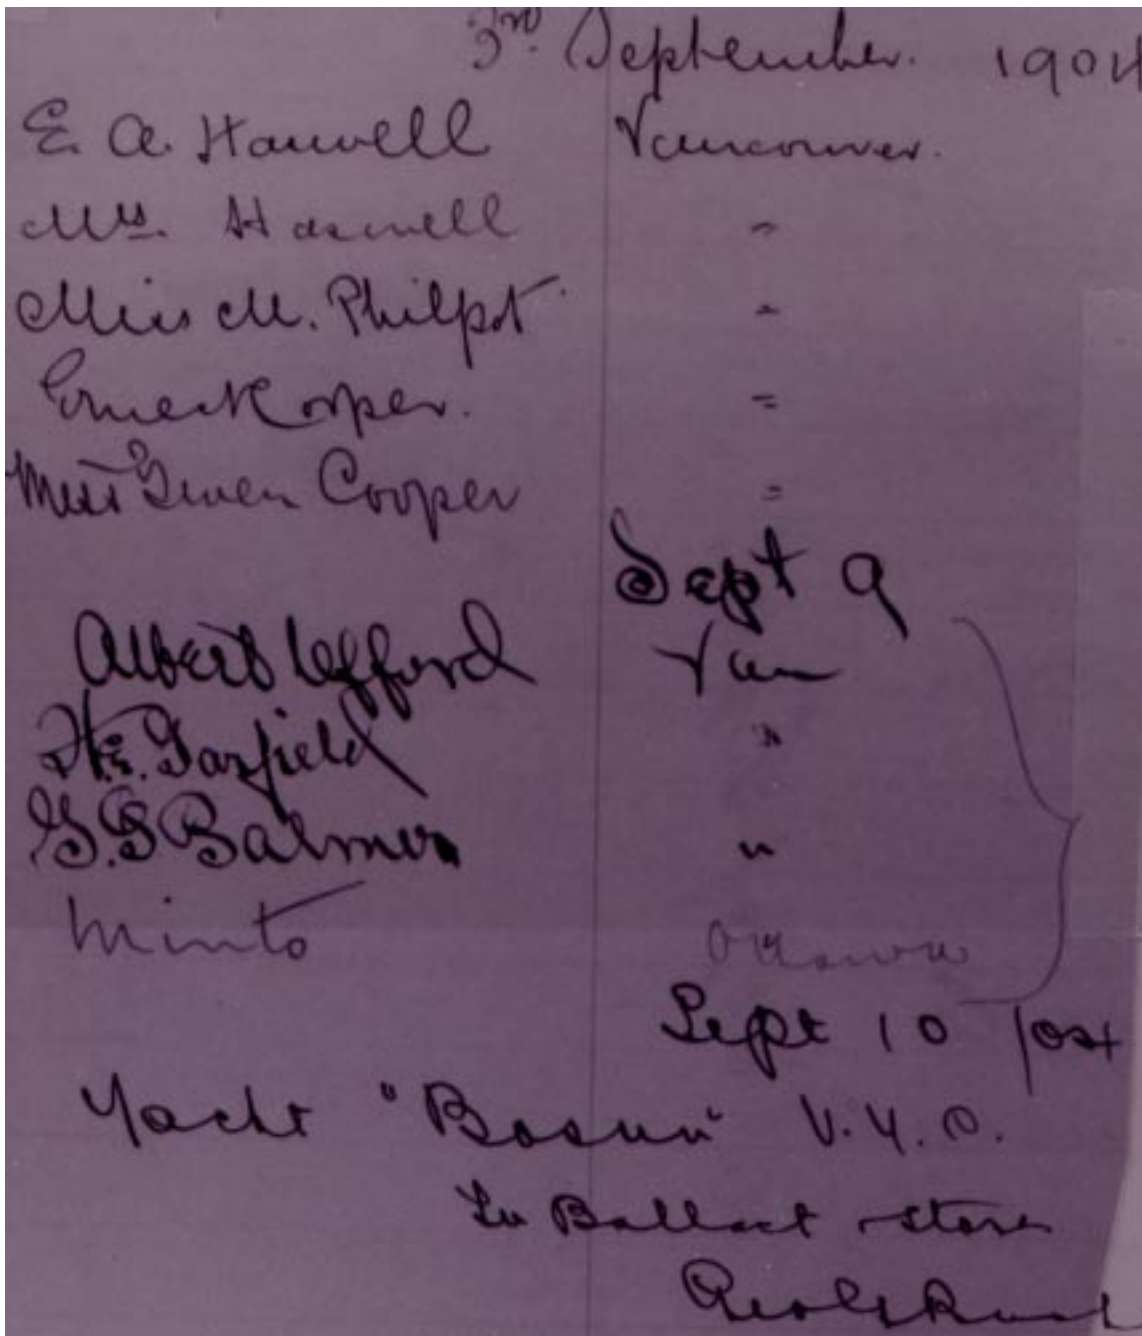 3rd. September. 1904
E. A. Haswell Vancouver.
Mrs. Haswell "
Miss M. Philpot "
Ernest Cooper. "
Miss Gwen Cooper "
Sept 9
Albert Ufford Van
H.E. Garfield "
G.B Balmer "
Minto Ottawa
Sept 10 /04
Yacht "Bosun" V.Y.C.
In Ballast